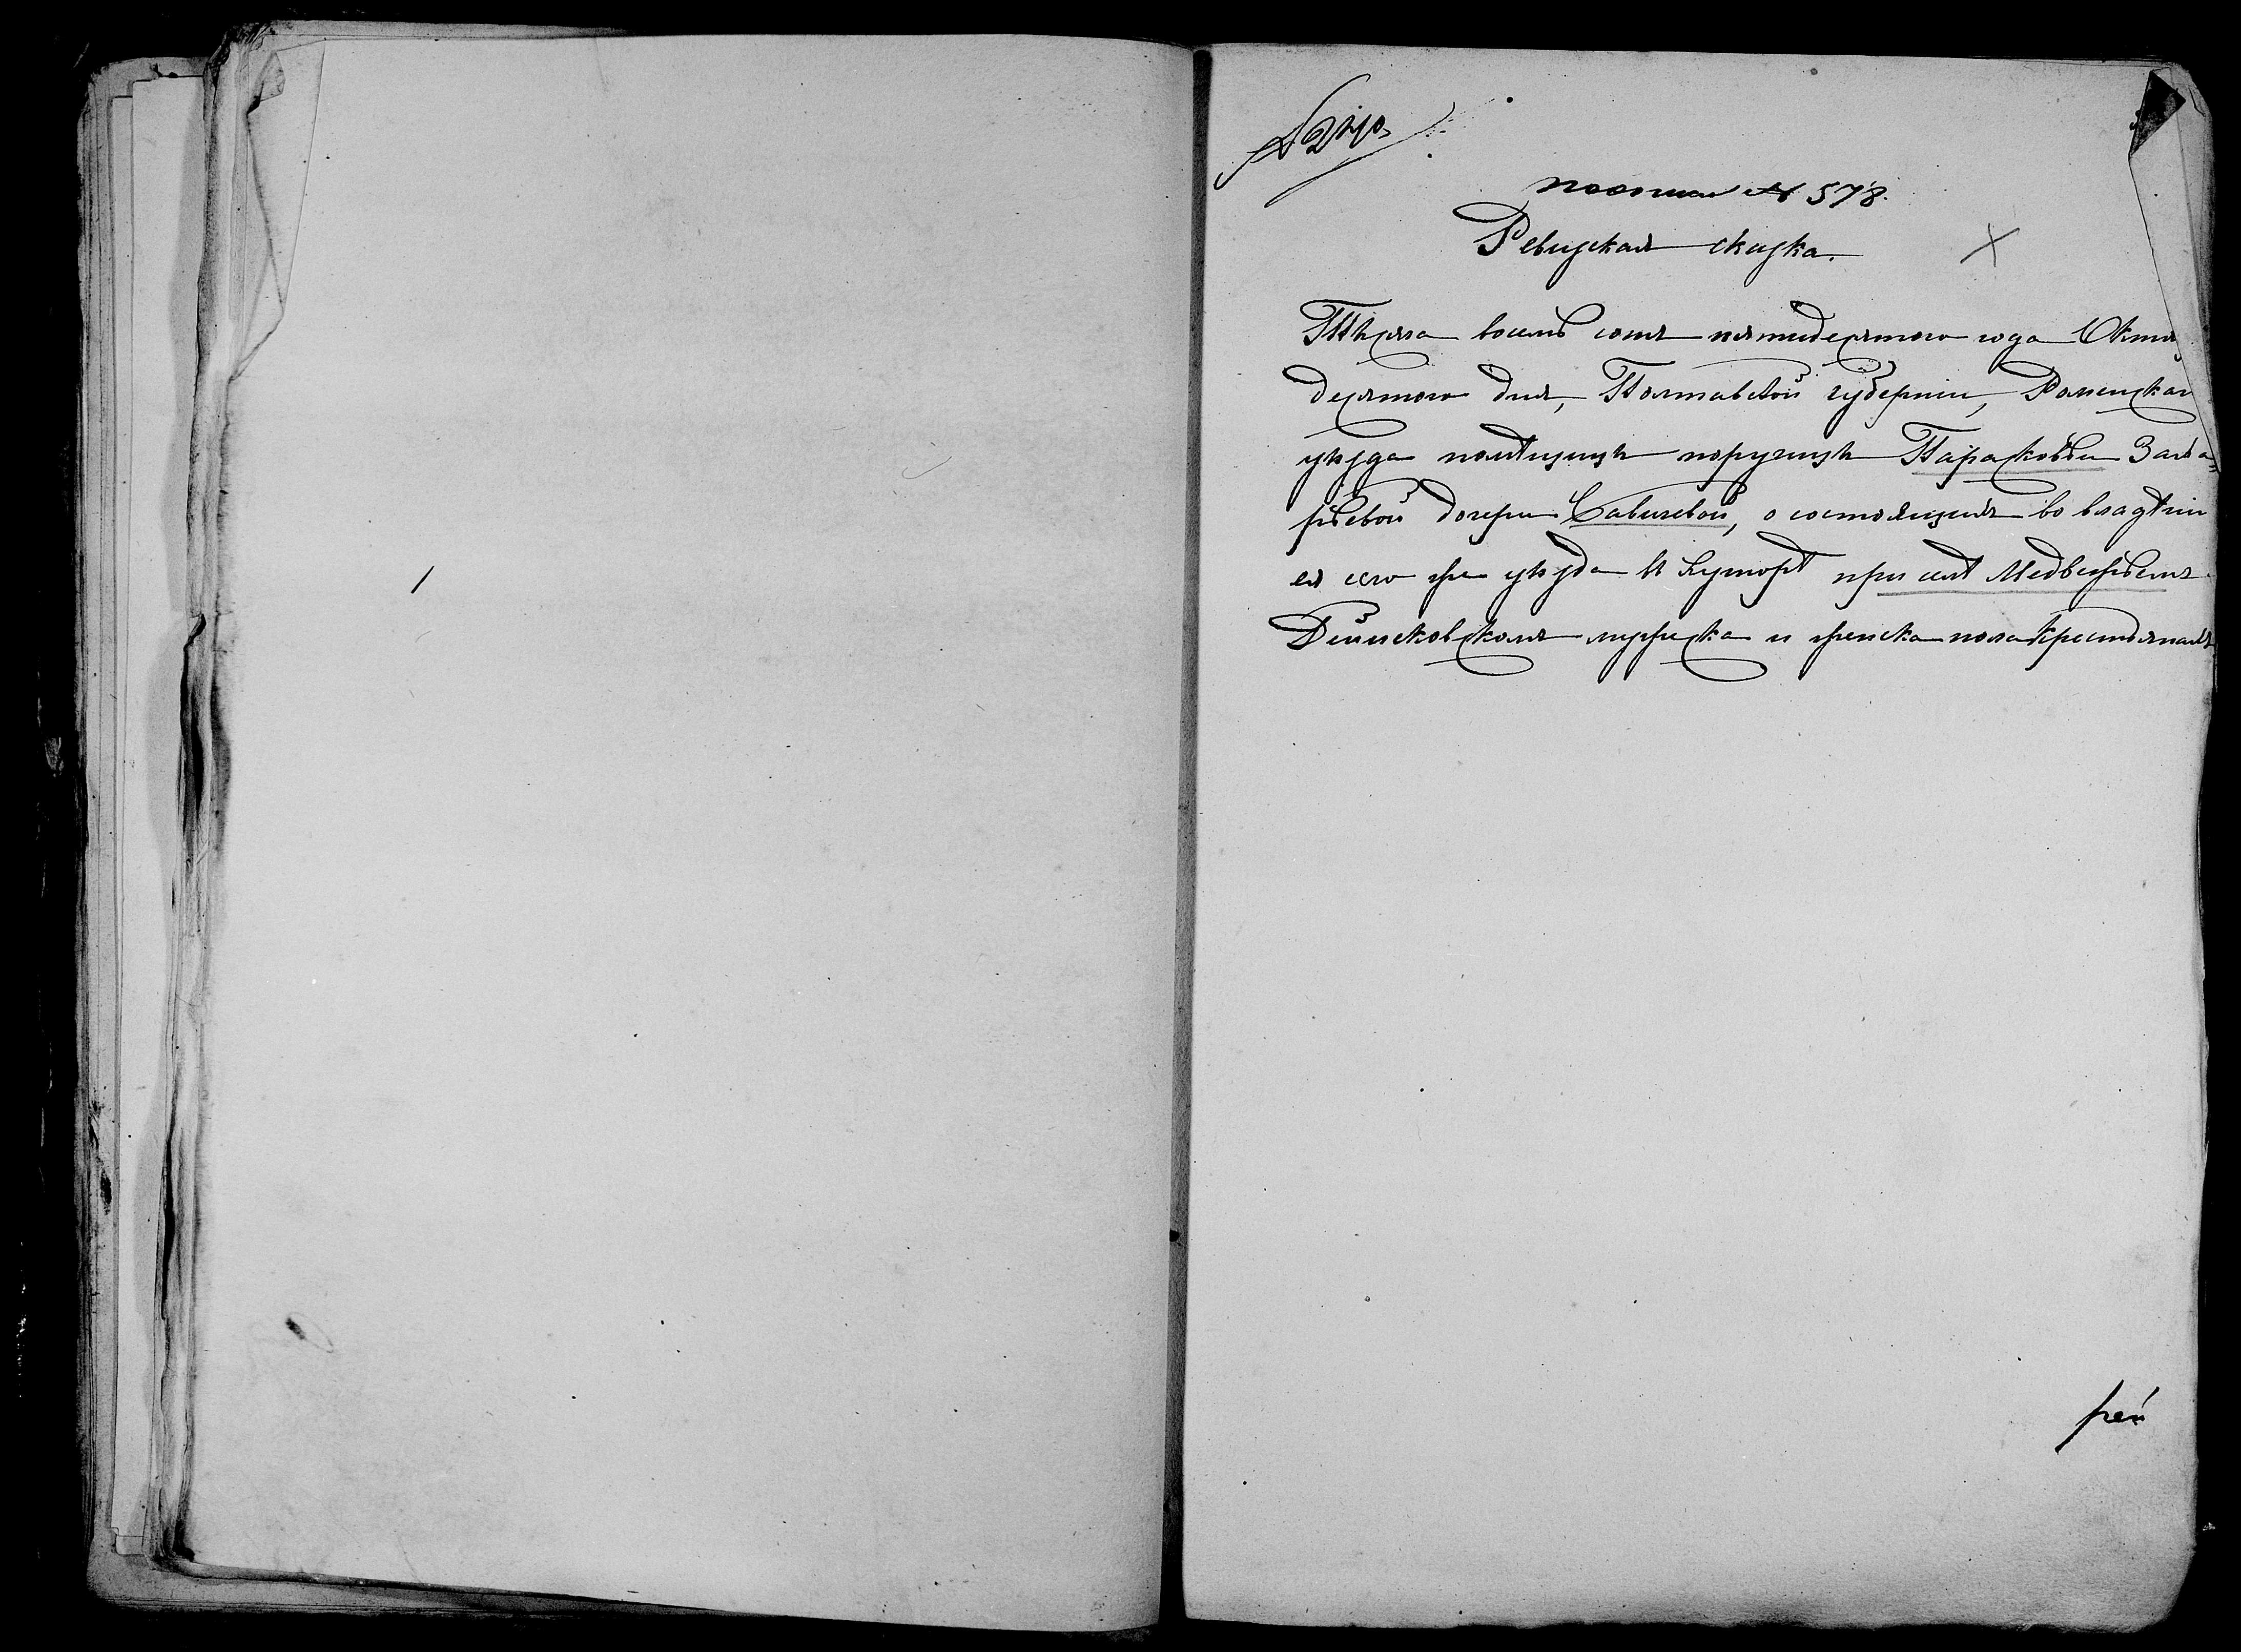 по описи № 578.
Ревизская сказка.
Тысяча восемь сотъ пятидесятого года Октя
десятого дня, Полтавской губерніи, Роменскаг
уѣзда помѣщицы поручицы Парасковѣи Заха=
рьевой дочери Савичевой, о состоящихъ во владѣніи
ея сего же уѣзда въ хуторѣ при селѣ Медвежьемъ
мужеска и женска пола крестьянахъ